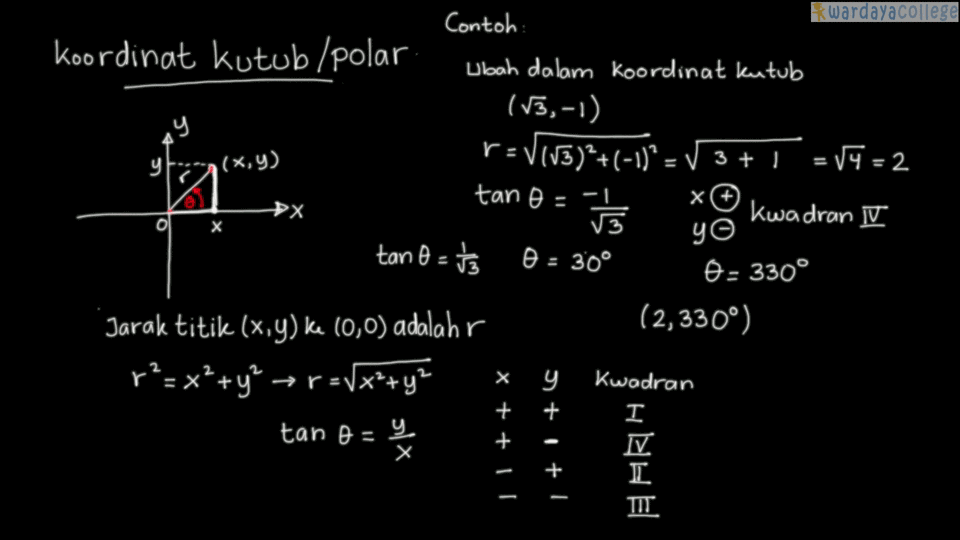 wardayacollege
Koordinat kutub/polar
y
y (x,y)
r
θ
0 x x
Jarak titik (x,y) ke (0,0) adalah r
r² = x² + y² → r = √(x² + y²)
tan θ = y/x
Contoh:
Ubah dalam koordinat kutub
(√3, -1)
r = √((√3)² + (-1)²) = √(3 + 1) = √4 = 2
tan θ = -1/√3
x ⊕
y ⊖
Kwadran IV
tan θ = 1/√3 θ = 30°
θ = 330°
(2, 330°)
x y Kwadran
+ + I
+ - IV
- + II
- - III